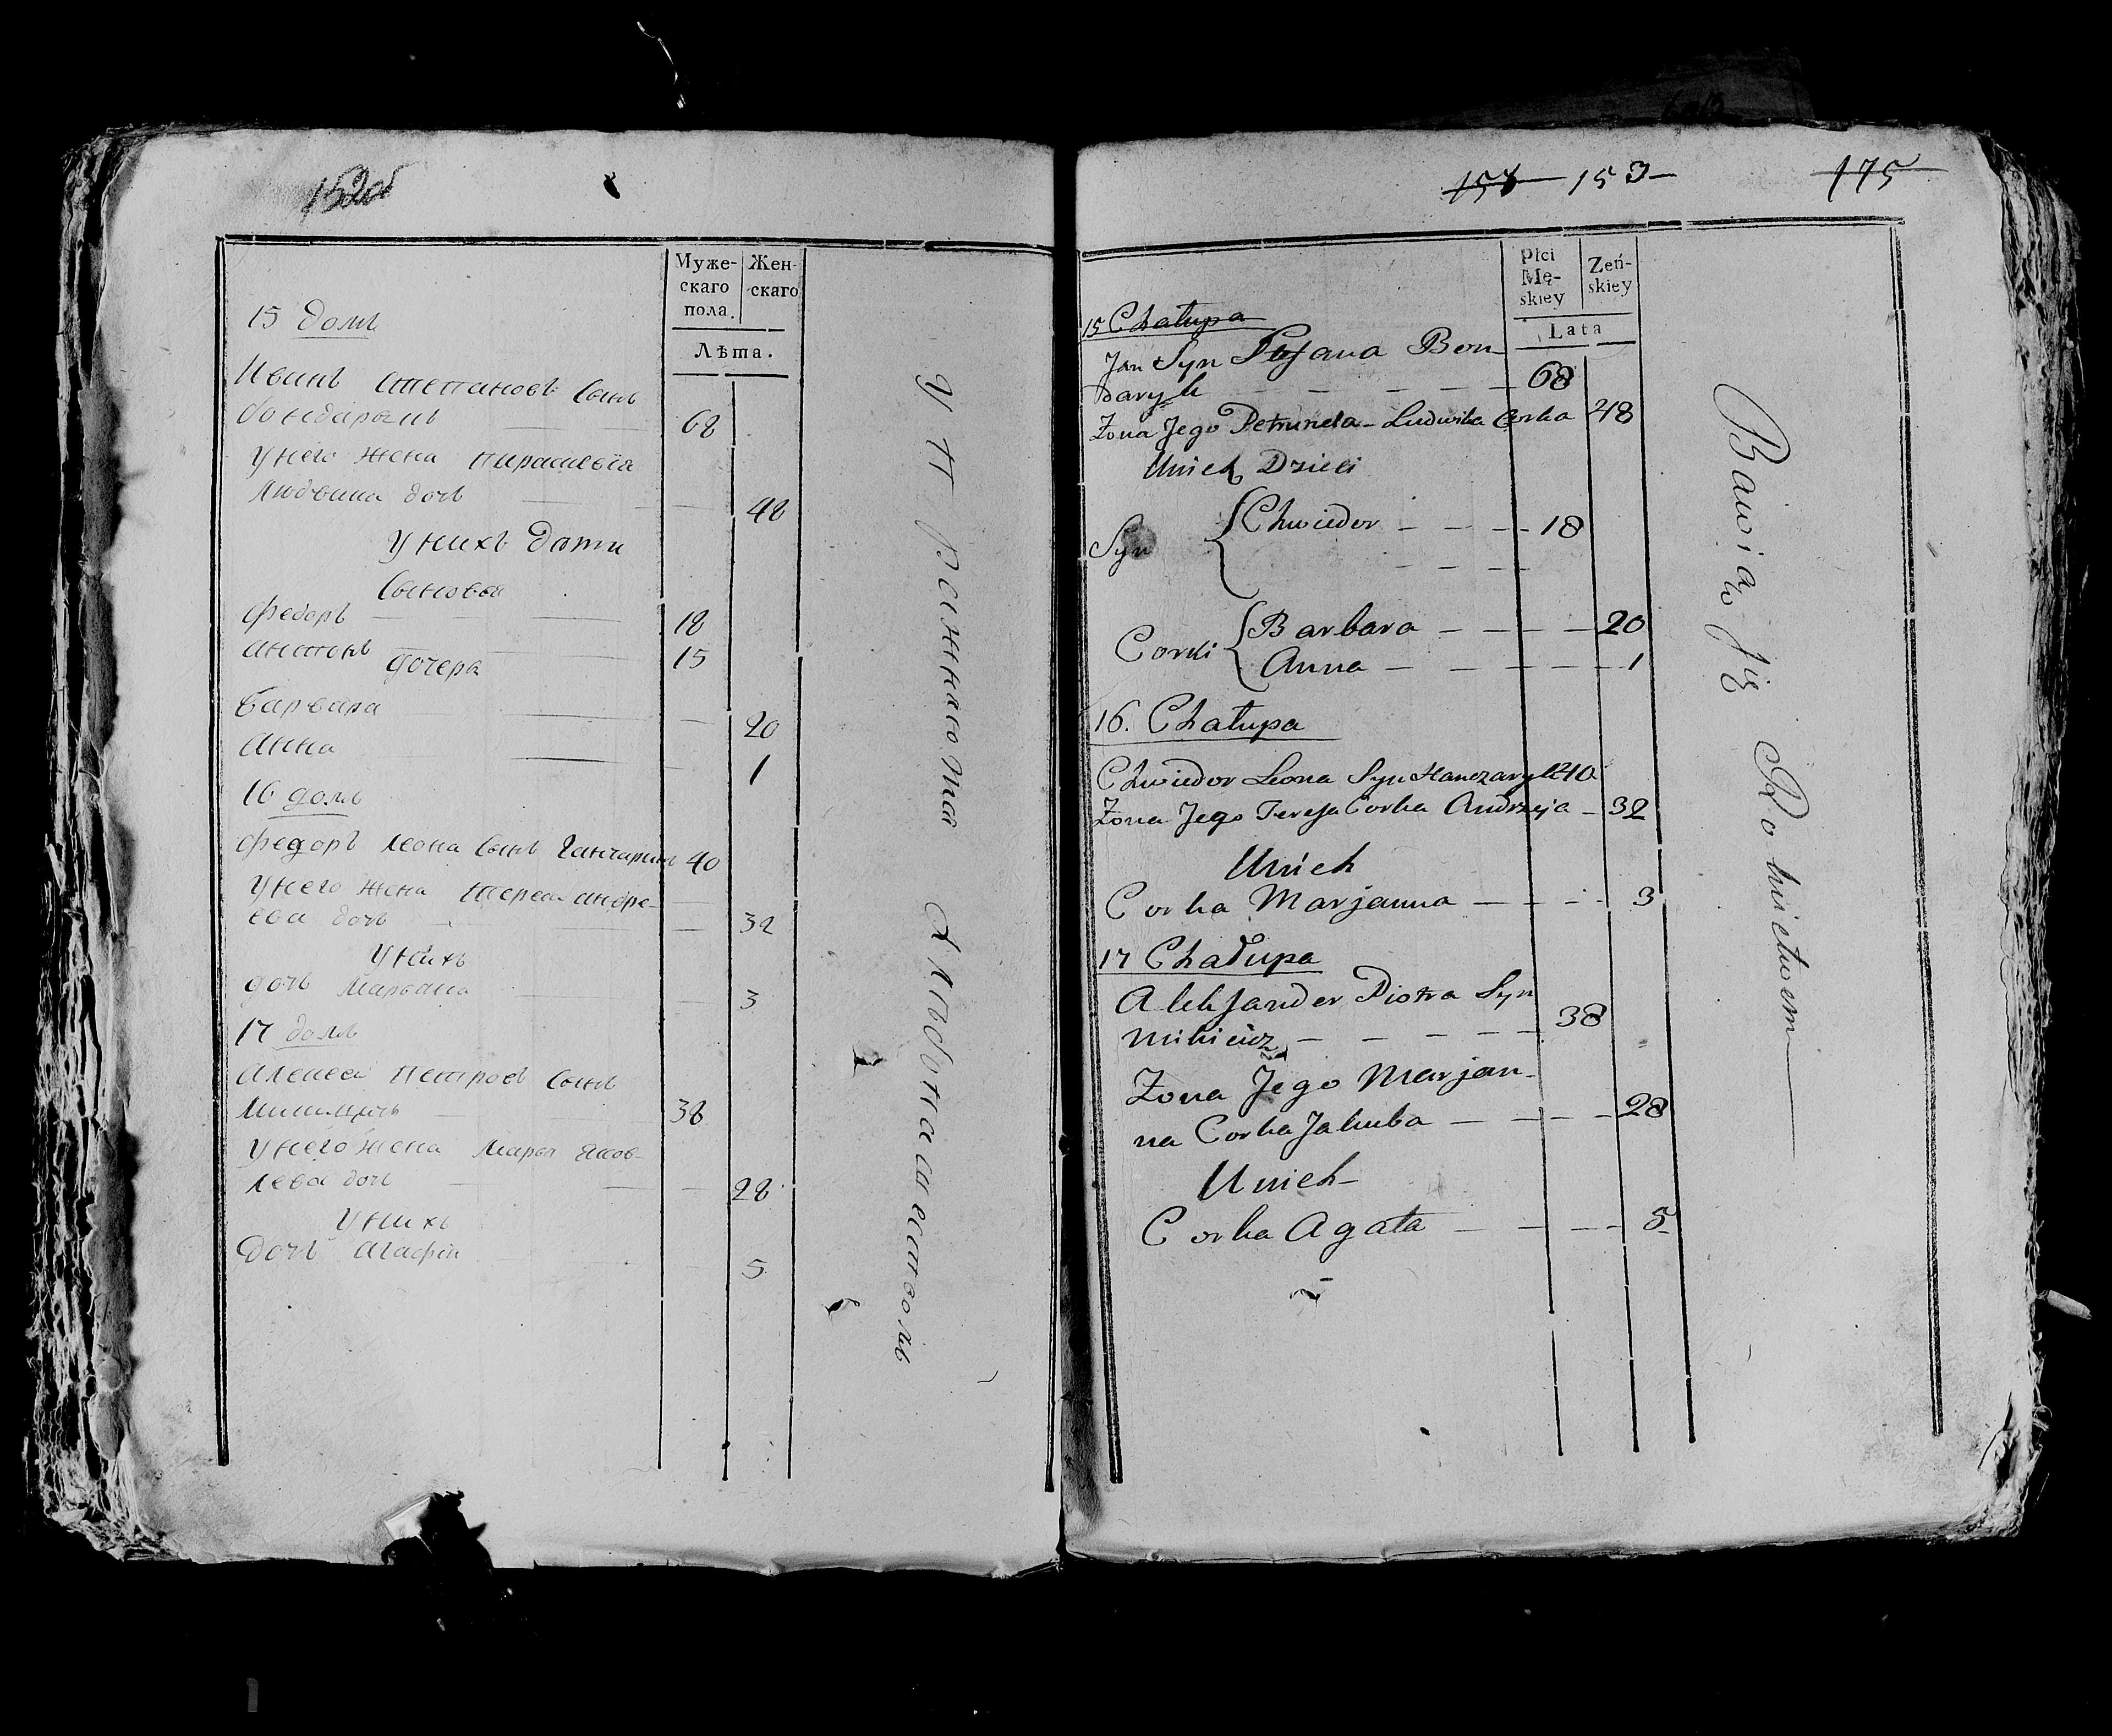 152об
Муже-
скаго
пола.
Жен-
скаго
Лѣта.
15 домъ
Иванъ Степановъ Сынъ
бондарикъ 68
У него жена
Людвика дочь 48
У нихъ дѣти
Сыновья
Федоръ 18
Антонъ 15
дочера
Варвара 20
Анна 1
16 домъ
Федоръ Леона Сынъ Ганчарикъ 40
У него жена Тереса Андре-
ева дочь 32
У нихъ
дочь Марьана 3
17 домъ
Алексей Петровъ Сынъ
38
У него жена Марья Яков-
лева дочь 28
У нихъ
дочь Агафия 5
Упражняются
Хлѣбопашествомъ
153 175
Płci
Mę-
skiey
Zeń-
skiey
Lata
15 Chałupa
Jan Syn Stefana Bon-
daryk 68
Żona Jego Petrunela Ludwika Corka 48
Unich Dzieci
Syn Chwiedor 18
Corki Barbara 20
Anna 1
16. Chałupa
Chwiedor Leona Syn Hanczaryk 40
Żona Jego Teresa Corka Andrzeja 32
Unich
Corka Marjanna 3
17 Chałupa
Alexander Piotra Syn
Mikicicz 38
Żona Jego Marjan-
na Corka Jakuba 28
Unich
Corka Agata 5
Bawią się Rolnictwem